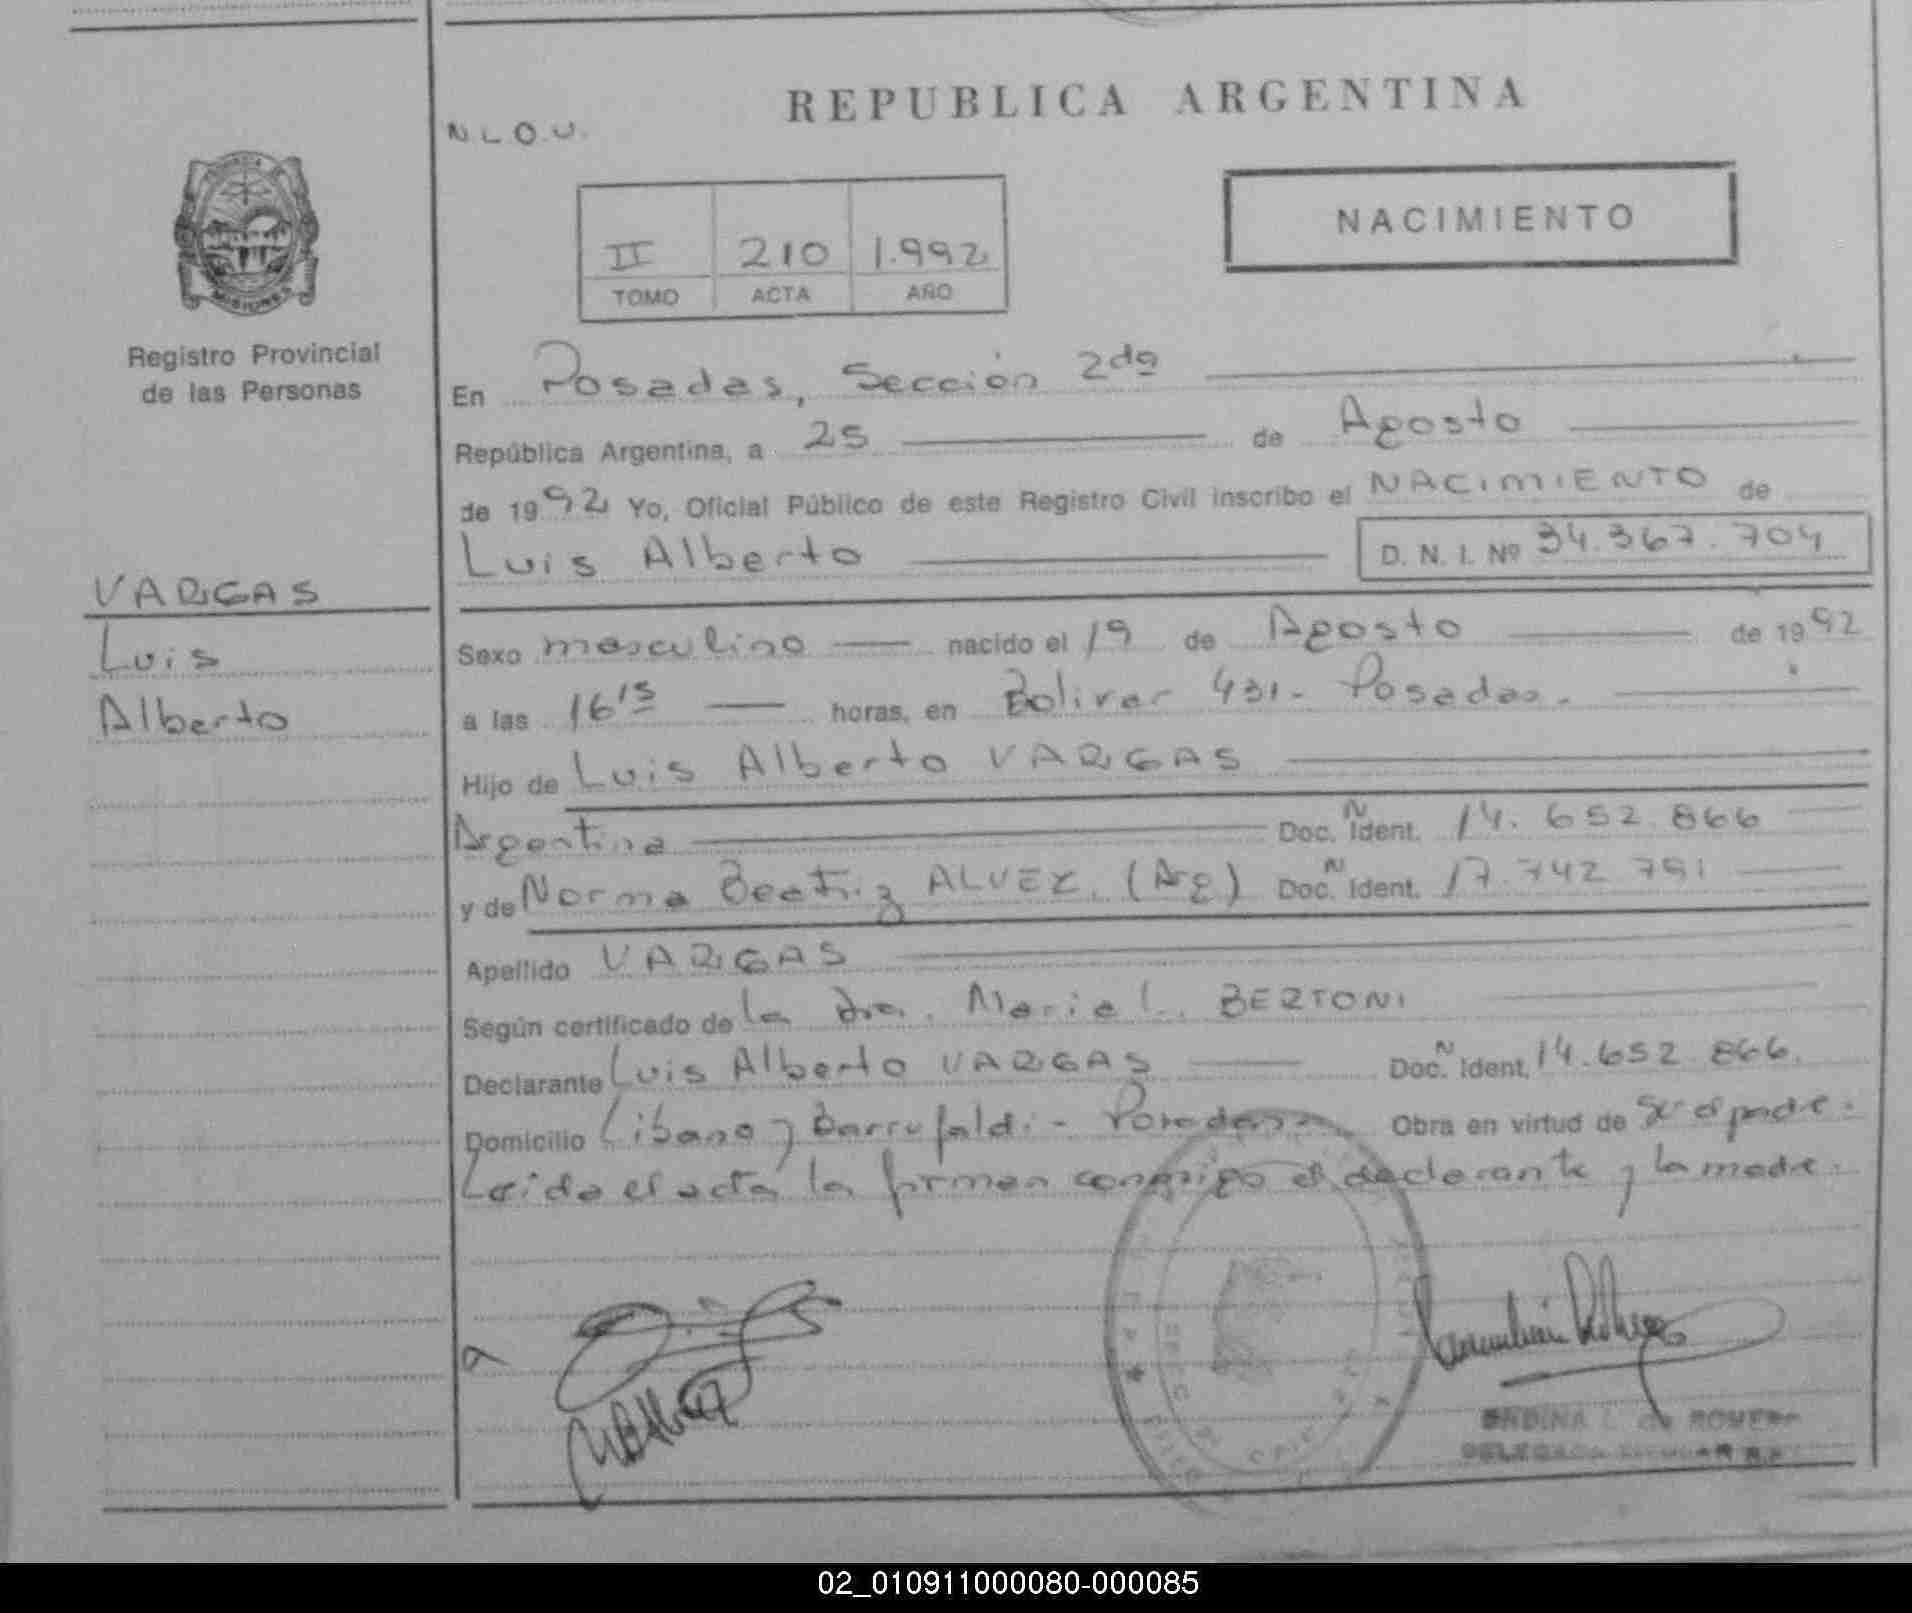 REPUBLICA ARGENTINA
N L O.U.
NACIMIENTO
II 210 1.992
TOMO ACTA AÑO
MISIONES
Registro Provincial
de las Personas
En Posadas, Sección 2da
República Argentina, a 25 de Agosto
de 1992 Yo, Oficial Público de este Registro Civil inscribo el NACIMIENTO de
Luis Alberto D. N. I. Nº 34.367.704
VARGAS
Luis
Alberto
Sexo masculino nacido el 19 de Agosto de 1992
a las 16 15 horas, en Bolivar 431- Posadas.
Hijo de Luis Alberto VARGAS
Argentina Doc. N Ident. 14.652.866
y de Norma Beatriz ALVEZ. (Arg) Doc. N Ident. 17.742.791
Apellido VARGAS
Según certificado de la Dra. Maria L. BERTONI
Declarante Luis Alberto VARGAS Doc. N Ident. 14.652.866.
Domicilio Libano y Barrufaldi - Posadas- Obra en virtud de ser el padre.
Leida el acta la firman conmigo el declarante y la madre.
ONDINA L. de ROMERO
DELEGADA TITULAR
02_010911000080-000085